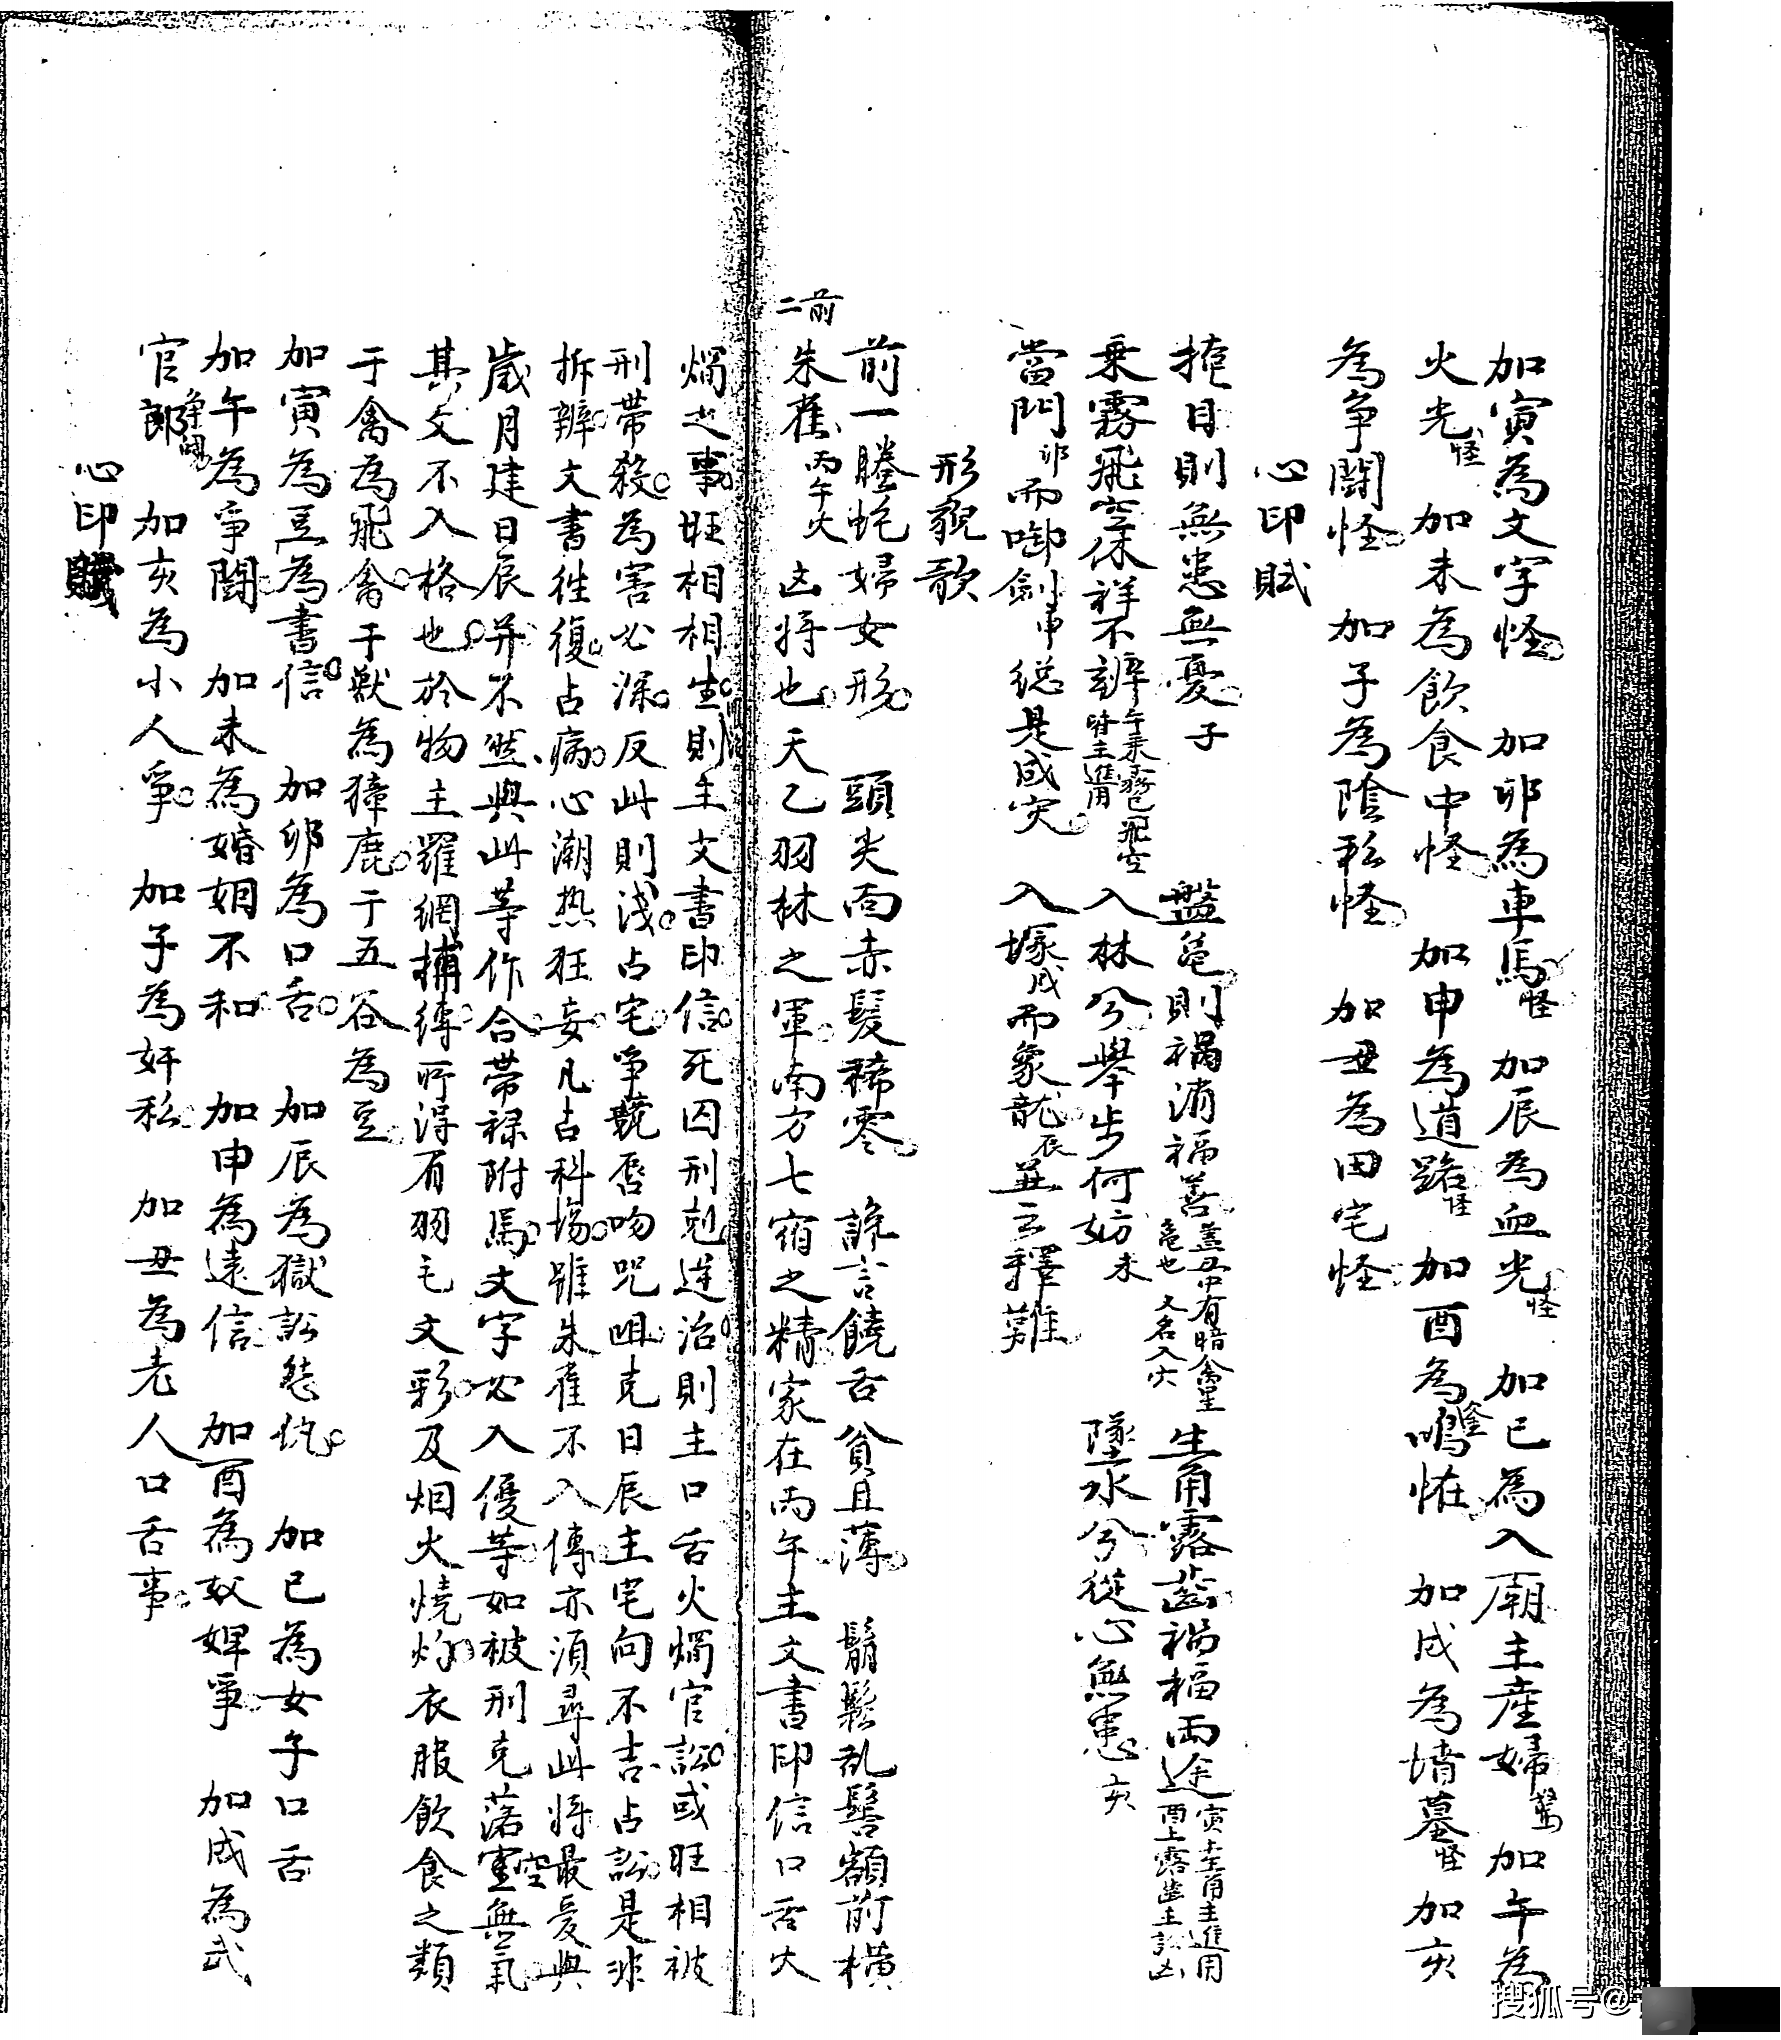 加寅為文字怪 加卯為車馬怪 加辰為血光怪 加巳為入廟主產婦驚 加午為
火光怪 加未為飲食中怪 加申為道路怪 加酉為鳴怪 加戌為墳墓怪 加亥
為爭鬪怪 加子為陰私怪 加丑為田宅怪
心印賦
掩目則無患無憂子 盤龜則禍消福善蓋丑中有暗禽星龜也又名入穴 生角露齒禍福兩途寅主生角主進用酉上露齒主訟凶
乗霧飛空休祥不辨午乗霧巳飛空皆主進用 入林兮舉步何妨未 墜水兮從心無患亥
當門卯而啣劍申総是成灾 入塚戌而象龍辰並云釋難
形貌歌
前一螣虵婦女形 頭尖面赤髮稀零 言饒舌貧且薄 鬅鬆亂髻額前橫
前二
朱雀丙午火凶將也天乙羽林之軍南方七宿之精家在丙午主文書印信口舌火
燭之事旺相相生則主文書印信死囚刑剋迸治則主口舌火燭官訟或旺相被
刑帶殺為害必深反此則淺占宅爭競唇吻咒咀克日辰主宅向不吉占訟是非
拆辨文書徃復占病心潮热狂妄凡占科場雖朱雀不入傳亦須尋此將最爱與
歲月建日辰并不然與此等作合帶祿附馬文字必入優等如被刑克落空無氣
其文不入格也於物主羅網捕縛所得有羽毛文彩及烟火燒灼衣服飲食之類
于禽為飛禽于獸為獐鹿于五谷為豆
加寅為豆為書信 加卯為口舌 加辰為獄訟愁忧 加巳為女子口舌
加午為爭鬪 加未為婚姻不和 加申為遠信 加酉為奴婢爭 加戌為武
官爭鬪 加亥為小人爭 加子為奸私 加丑為老人口舌事
心印賦
搜狐号@